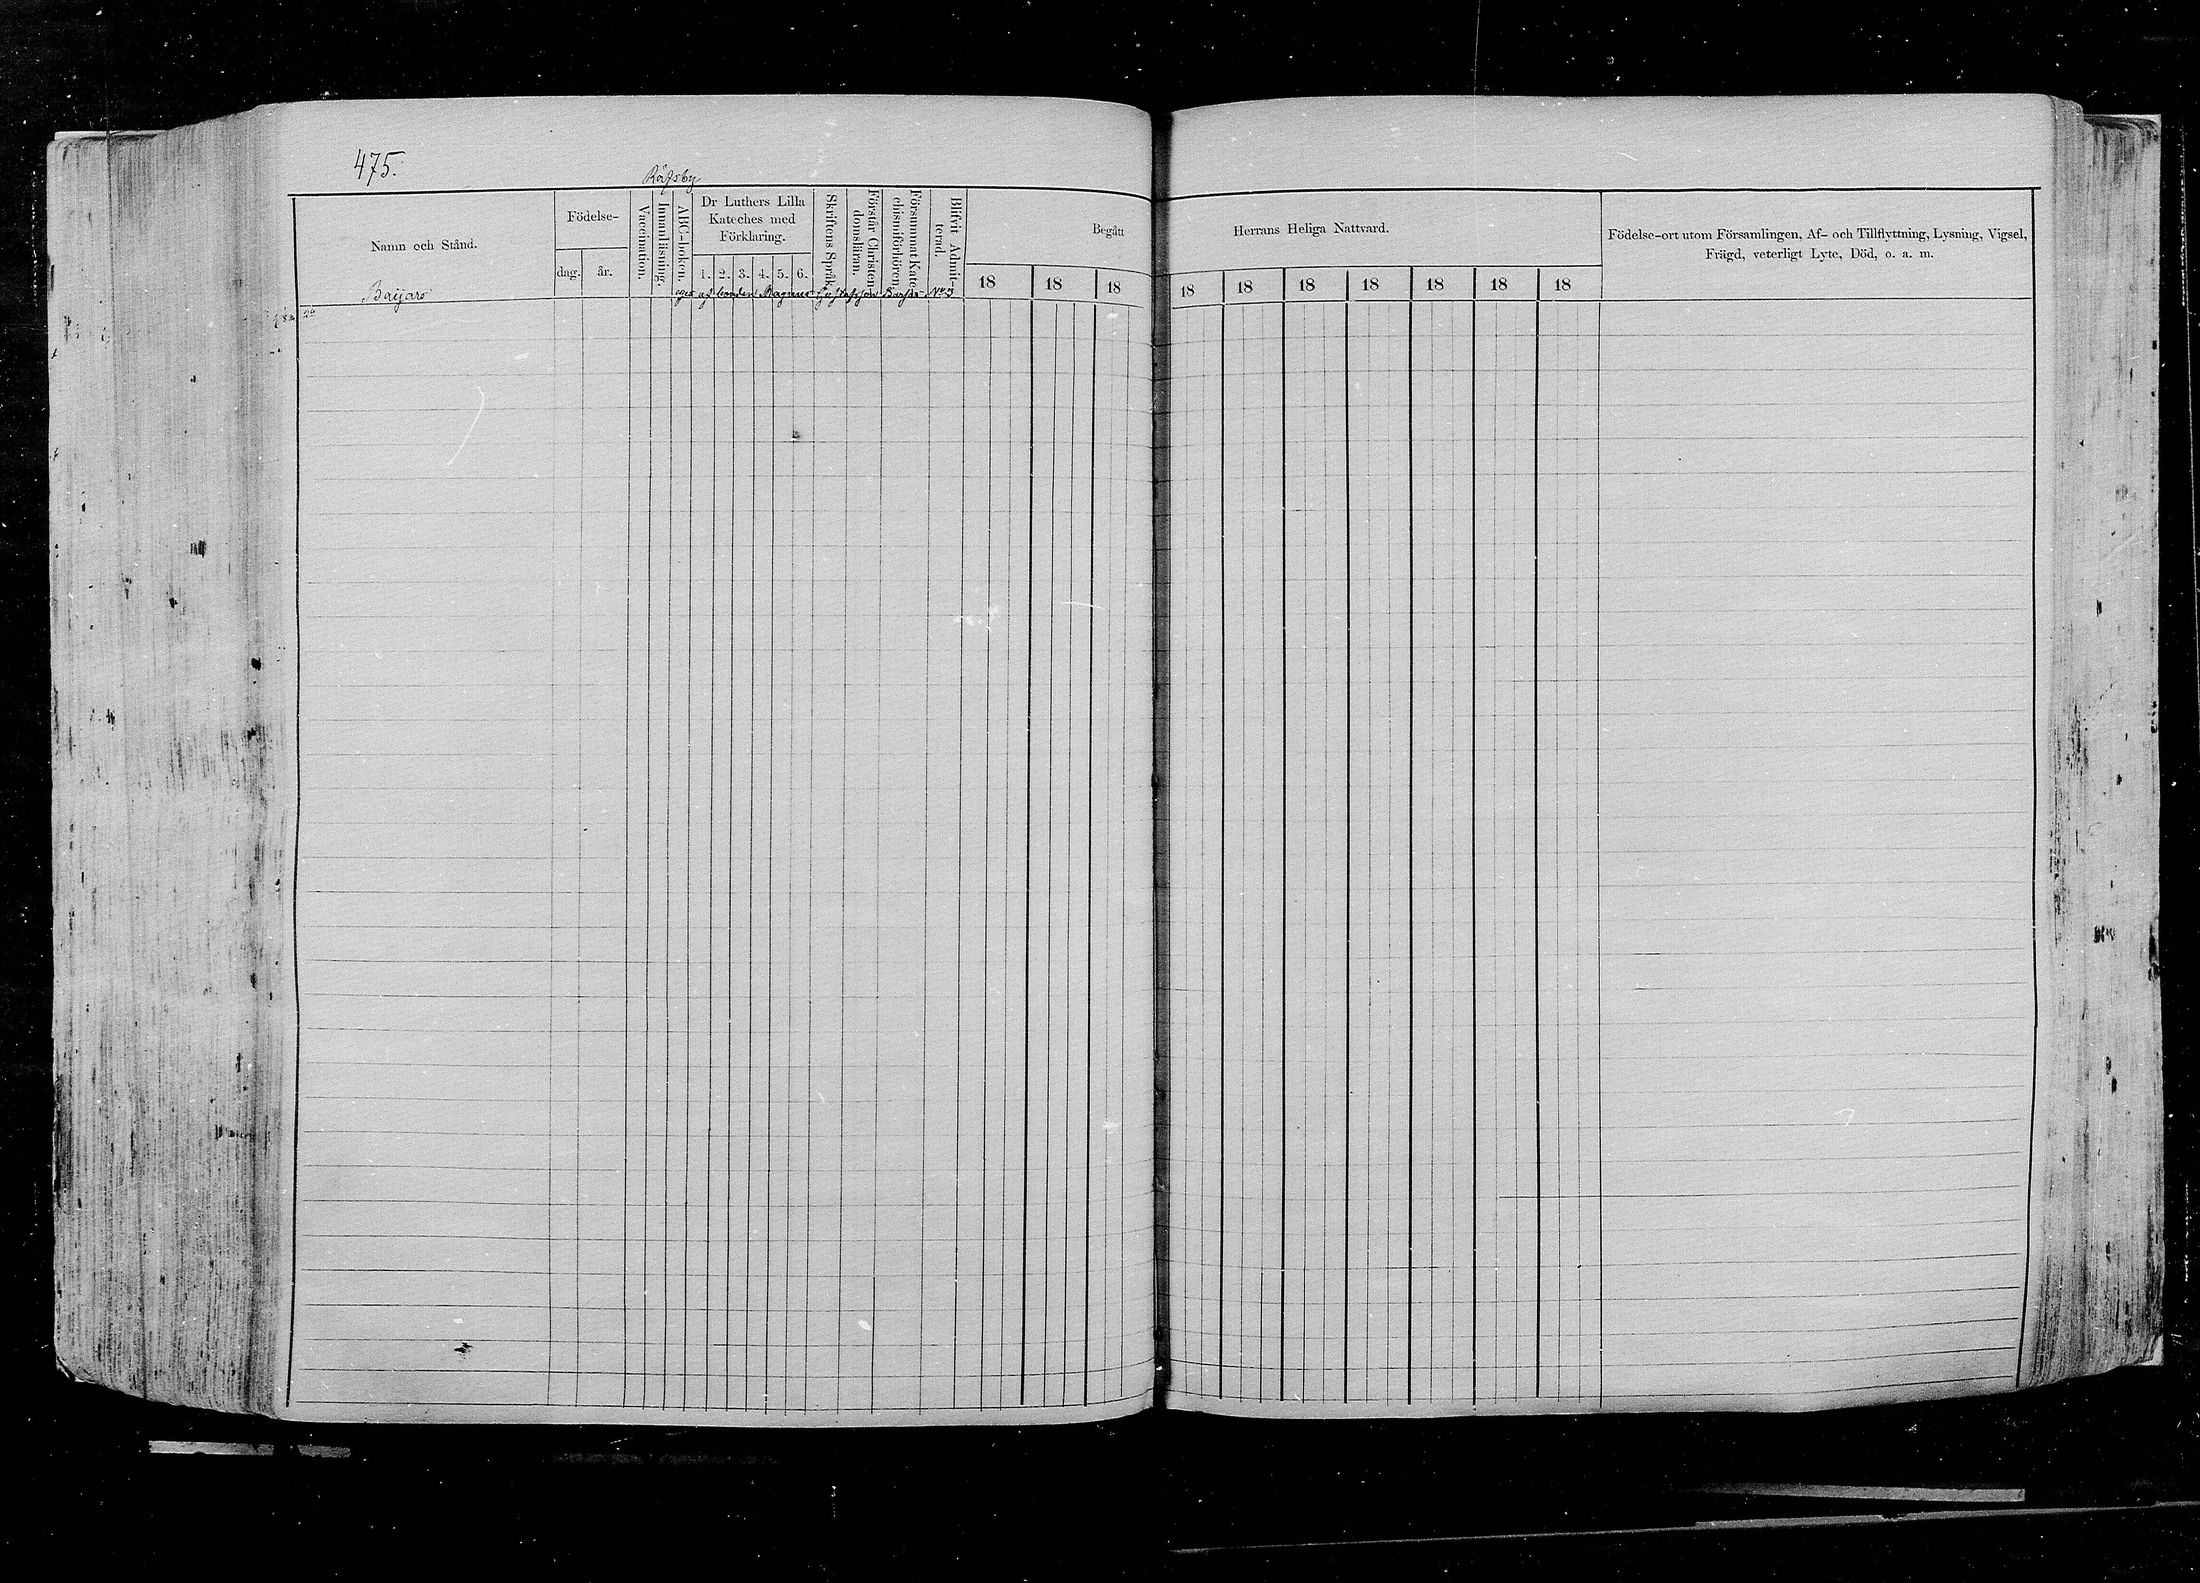 475.
Räfsby
Namn och Stånd.
Födelse-
dag.
år.
Vaccination.
Innanläsning.
ABC-boken.
Dr Luthers Lilla
Kateches med
Förklaring.
1. 2. 3. 4. 5. 6.
Skriftens Språk.
Förstår Christen-
domsläran.
Försummat Kate-
chismiförhören.
Blifvit Admit-
terad.
Begått
18 18 18
Baijars
eges af bonden Magnus Gustafsson N:o 3
Herrans Heliga Nattvard.
18 18 18 18 18 18 18
Födelse-ort utom Församlingen, Af- och Tillflyttning, Lysning, Vigsel,
Frägd, veterligt Lyte, Död, o. a. m.